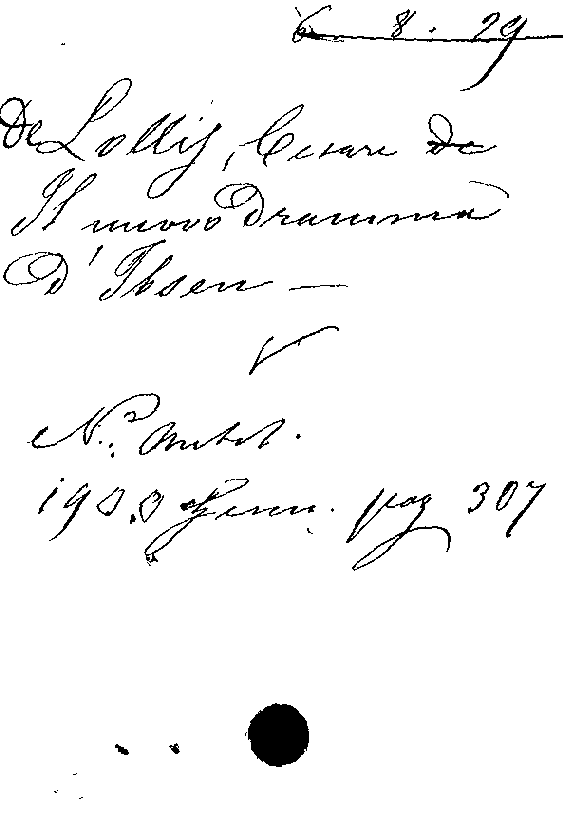 6 8 . 29
De Lollis, Cesare de
Il nuovo Dramma
D'Ibsen —
Nª. Antol.
1900 Genn. pag 307